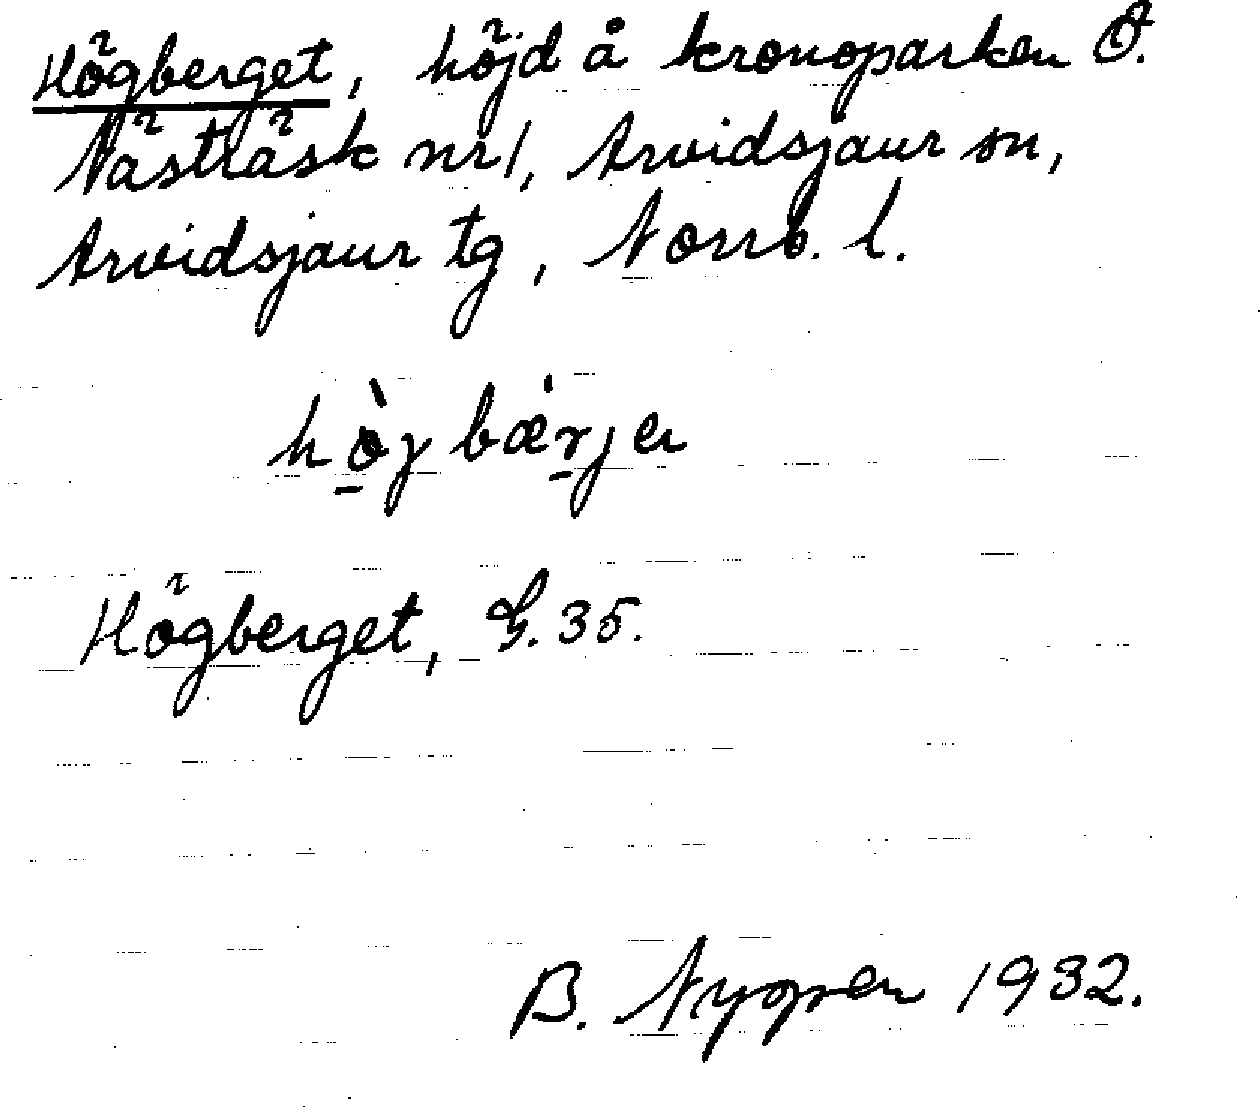 Högberget, höjd å kronoparken Ö.
Nästräsk nr 1, Arvidsjaur sn,
Arvidsjaur tg, Norrb. l.
hö̀jbǽrjen
Högberget, G. 35.
B. 1932.